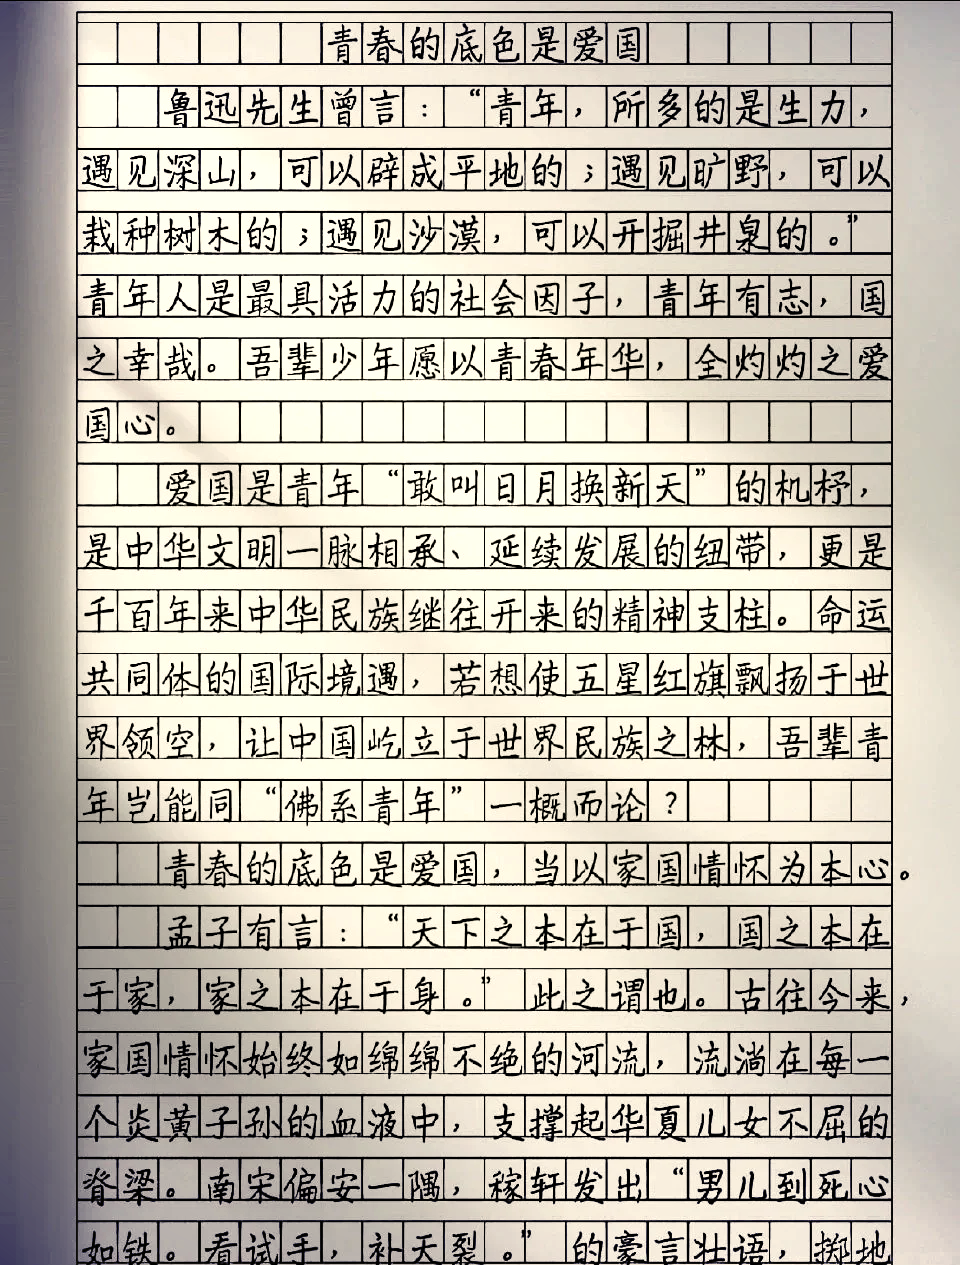 青春的底色是爱国
鲁迅先生曾言：“青年，所多的是生力，
遇见深山，可以辟成平地的；遇见旷野，可以
栽种树木的；遇见沙漠，可以开掘井泉的。”
青年人是最具活力的社会因子，青年有志，国
之幸哉。吾辈少年愿以青春年华，全灼灼之爱
国心。
爱国是青年“敢叫日月换新天”的机杼，
是中华文明一脉相承、延续发展的纽带，更是
千百年来中华民族继往开来的精神支柱。命运
共同体的国际境遇，若想使五星红旗飘扬于世
界领空，让中国屹立于世界民族之林，吾辈青
年岂能同“佛系青年”一概而论？
青春的底色是爱国，当以家国情怀为本心。
孟子有言：“天下之本在于国，国之本在
于家，家之本在于身。”此之谓也。古往今来，
家国情怀始终如绵绵不绝的河流，流淌在每一
个炎黄子孙的血液中，支撑起华夏儿女不屈的
脊梁。南宋偏安一隅，稼轩发出“男儿到死心
如铁。看试手，补天裂。”的豪言壮语，掷地